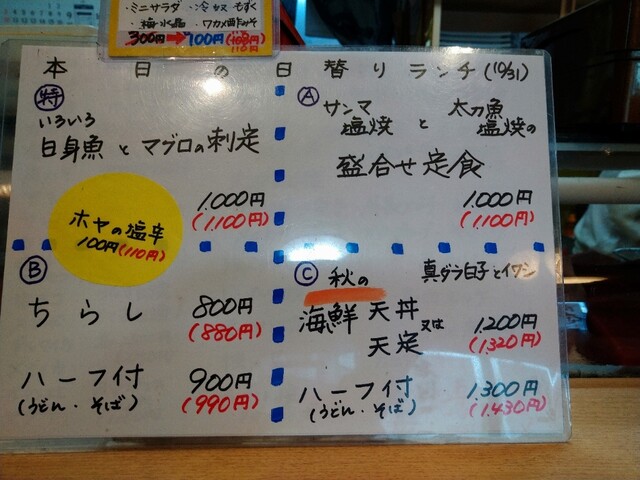 ・ミニサラダ ・冷奴 もずく
・梅水晶 ・ワカメ酢みそ
300円→100円(108円)
110円
本日の日替りランチ(10/31)
特
いろいろ
白身魚とマグロの刺定
1,000円
(1,100円)
ホヤの塩辛
100円(110円)
A
サンマ塩焼と太刀魚塩焼の
盛合せ定食
1,000円
(1,100円)
B
ちらし 800円
(880円)
ハーフ付 900円
(うどん・そば) (990円)
C
秋の 真ダラ白子とイワシ
海鮮天丼又は天定
1,200円
(1,320円)
ハーフ付 1,300円
(うどん・そば) (1,430円)